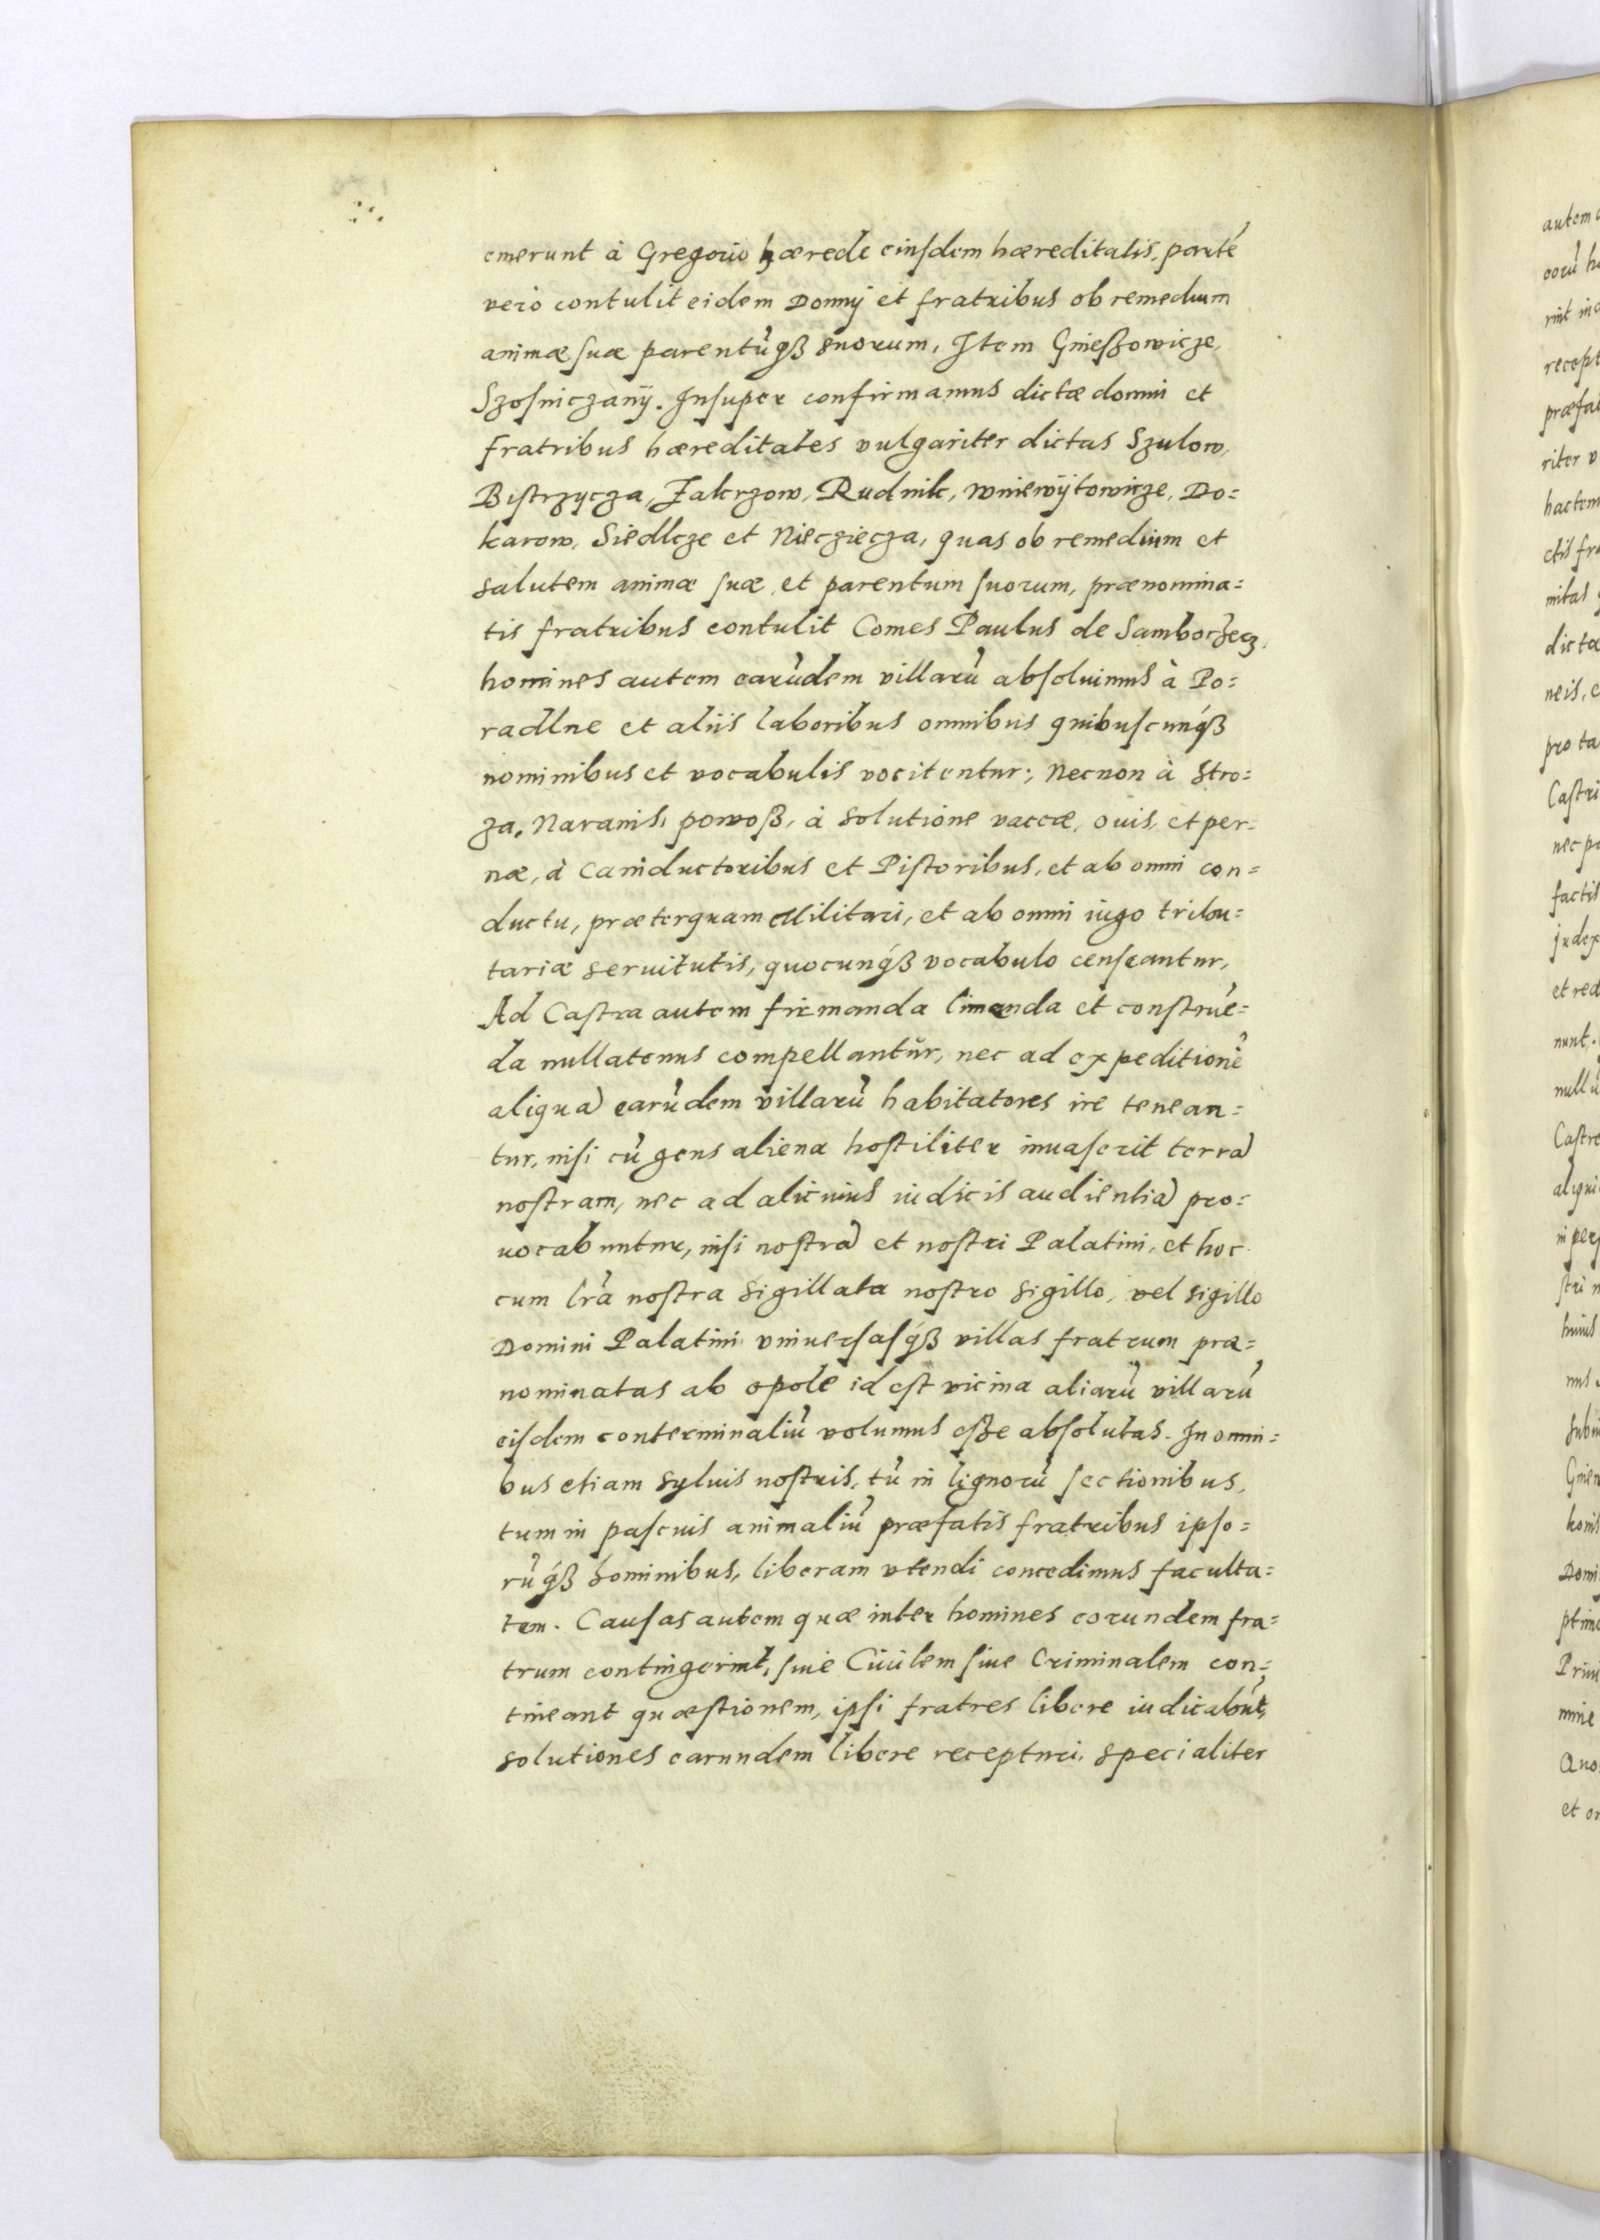 emerunt à Gregorio hærede eiusdem hæreditatis, parté
verò contulit eidem Domuj et fratribus ob remedium
animæ suæ parentũqß suorum, Item Gnießowicze,
Szosniczanÿ. Insuper confirmamus dictæ domui et
fratribus hæreditates vulgariter dictas Szulow,
Bistrzycza, Zakrzow, Rudnik, Wniewÿtowicze, Do=
karow, Siedlcze et Niecziecza, quas ob remedium et
salutem animæ suæ, et parentum suorum, prænomina=
tis fratribus contulit Comes Paulus de Samborzecz,
homines autem earũdem villarũ absoluimus à Po=
radlne et aliis laboribus omnibus quibuscunqß
nominibus et vocabulis vocitentur; necnon à Stro=
za. Naranis, powoß, à solutione vaccæ, ouis, et per=
næ, à Caniductoribus et Pistoribus, et ab omni con=
ductu, præterquam Militari, et ab omni iugo tribu=
tariæ seruitutis, quocunqß vocabulo censeantur,
Ad Castra autem firmanda limanda et construẽ=
da nullatenus compellantũr, nec ad expeditionẽ
aliquã earũdem villarũ habitatores ire tenean=
tur, nisi cũ gens aliena hostiliter inuaserit terrã
nostram, nec ad alicuius iudicis audientiã pro=
uocabuntur, nisi nostrã et nostri Palatini, et hoc
cum lrã nostra sigillata nostro sigillo, vel sigillo
Domini Palatini vniuersasqß villas fratrum præ=
nominatas ab opole id est vicina aliarũ villarũ
eisdem conterminaliũ volumus eße absolutas. In omni=
bus etiam syluis nostris, tũ in lignorũ sectionibus,
tum in pascuis animaliũ præfatis fratribus ipso=
rũqß hominibus, liberam vtendi concedimus faculta=
tem. Causas autem quæ inter homines eorundem fra=
trum contingerint, siue Ciuilem siue Criminalem con=
tineant quæstionem, ipsi fratres libere iudicabũt,
solutiones earundem libere recepturi, specialiter